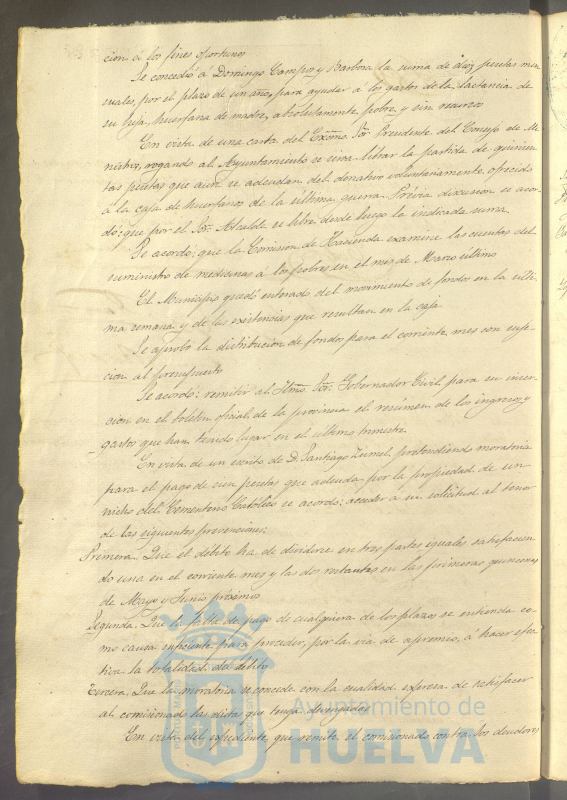 cion á los fines oportunos
Se concedió á Domingo Campos y Barbosa la suma de diez pesetas men-
suales, por el plazo de un año, para ayudar á los gastos de la lactancia de
su hija, huerfana de madre, absolutamente pobre y sin recursos
En vista de una carta del Excmo. Sor. Presidente del Consejo de Mi-
nistros, rogando al Ayuntamiento se sirva librar la partida de quinien-
tas pesetas que aun se adeudan del donativo voluntariamente ofrecido
á la caja de huerfanos de la ultima guerra. Prévia discusion se acor-
dó: que por el Sor. Alcalde se libre desde luego la indicada suma.
Se acordó; que la Comision de Hacienda examine las cuentas del
suministro de medicinas á los pobres en el mes de Marzo ultimo
El Municipio quedó enterado del movimiento de fondos en la ulti-
ma semana y de las existencias que resultan en la caja
Se aprobó la distribucion de fondos para el corriente mes con suje-
cion al presupuesto
Se acordó: remitir al Iltmo. Sor. Gobernador Civil para su inser-
cion en el boletin oficial de la provincia el resúmen de los ingresos y
gastos que han tenido lugar en el ultimo trimestre
En vista de un escrito de D. Santiago Zumel, pretendiendo moratoria
para el pago de cien pesetas que adeuda por la propiedad de un
nicho del Cementerio Católico se acordó: acceder á su solicitud al tenor
de las siguientes prevenciones:
Primera. Que el debito ha de dividirse en tres partes iguales satisfacien-
do una en el corriente mes y las dos restantes en las primeras quincenas
de Mayo y Junio proximos
Segunda. Que la falta de pago de cualquiera de los plazos se entienda co-
mo causa suficiente para proceder, por la via de apremio, á hacer efec-
tiva la totalidad del débito
Tercera. Que la moratoria se concede con la cualidad expresa de satisfacer
al comisionado las dietas que tenga devengadas
En vista del expediente que remite el comisionado contra los deudores
Ayuntamiento de
HUELVA